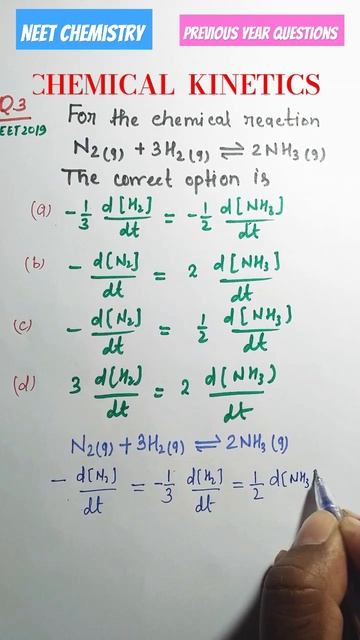 NEET CHEMISTRY
PREVIOUS YEAR QUESTIONS
CHEMICAL KINETICS
Q3
EET2019
For the chemical reaction
N₂(g) + 3H₂(g) ⇌ 2NH₃(g)
The correct option is
(a) -1/3 d[H₂]/dt = -1/2 d[NH₃]/dt
(b) - d[N₂]/dt = 2 d[NH₃]/dt
(c) - d[N₂]/dt = 1/2 d[NH₃]/dt
(d) 3 d[H₂]/dt = 2 d[NH₃]/dt
N₂(g) + 3H₂(g) ⇌ 2NH₃(g)
- d[N₂]/dt = -1/3 d[H₂]/dt = 1/2 d[NH₃